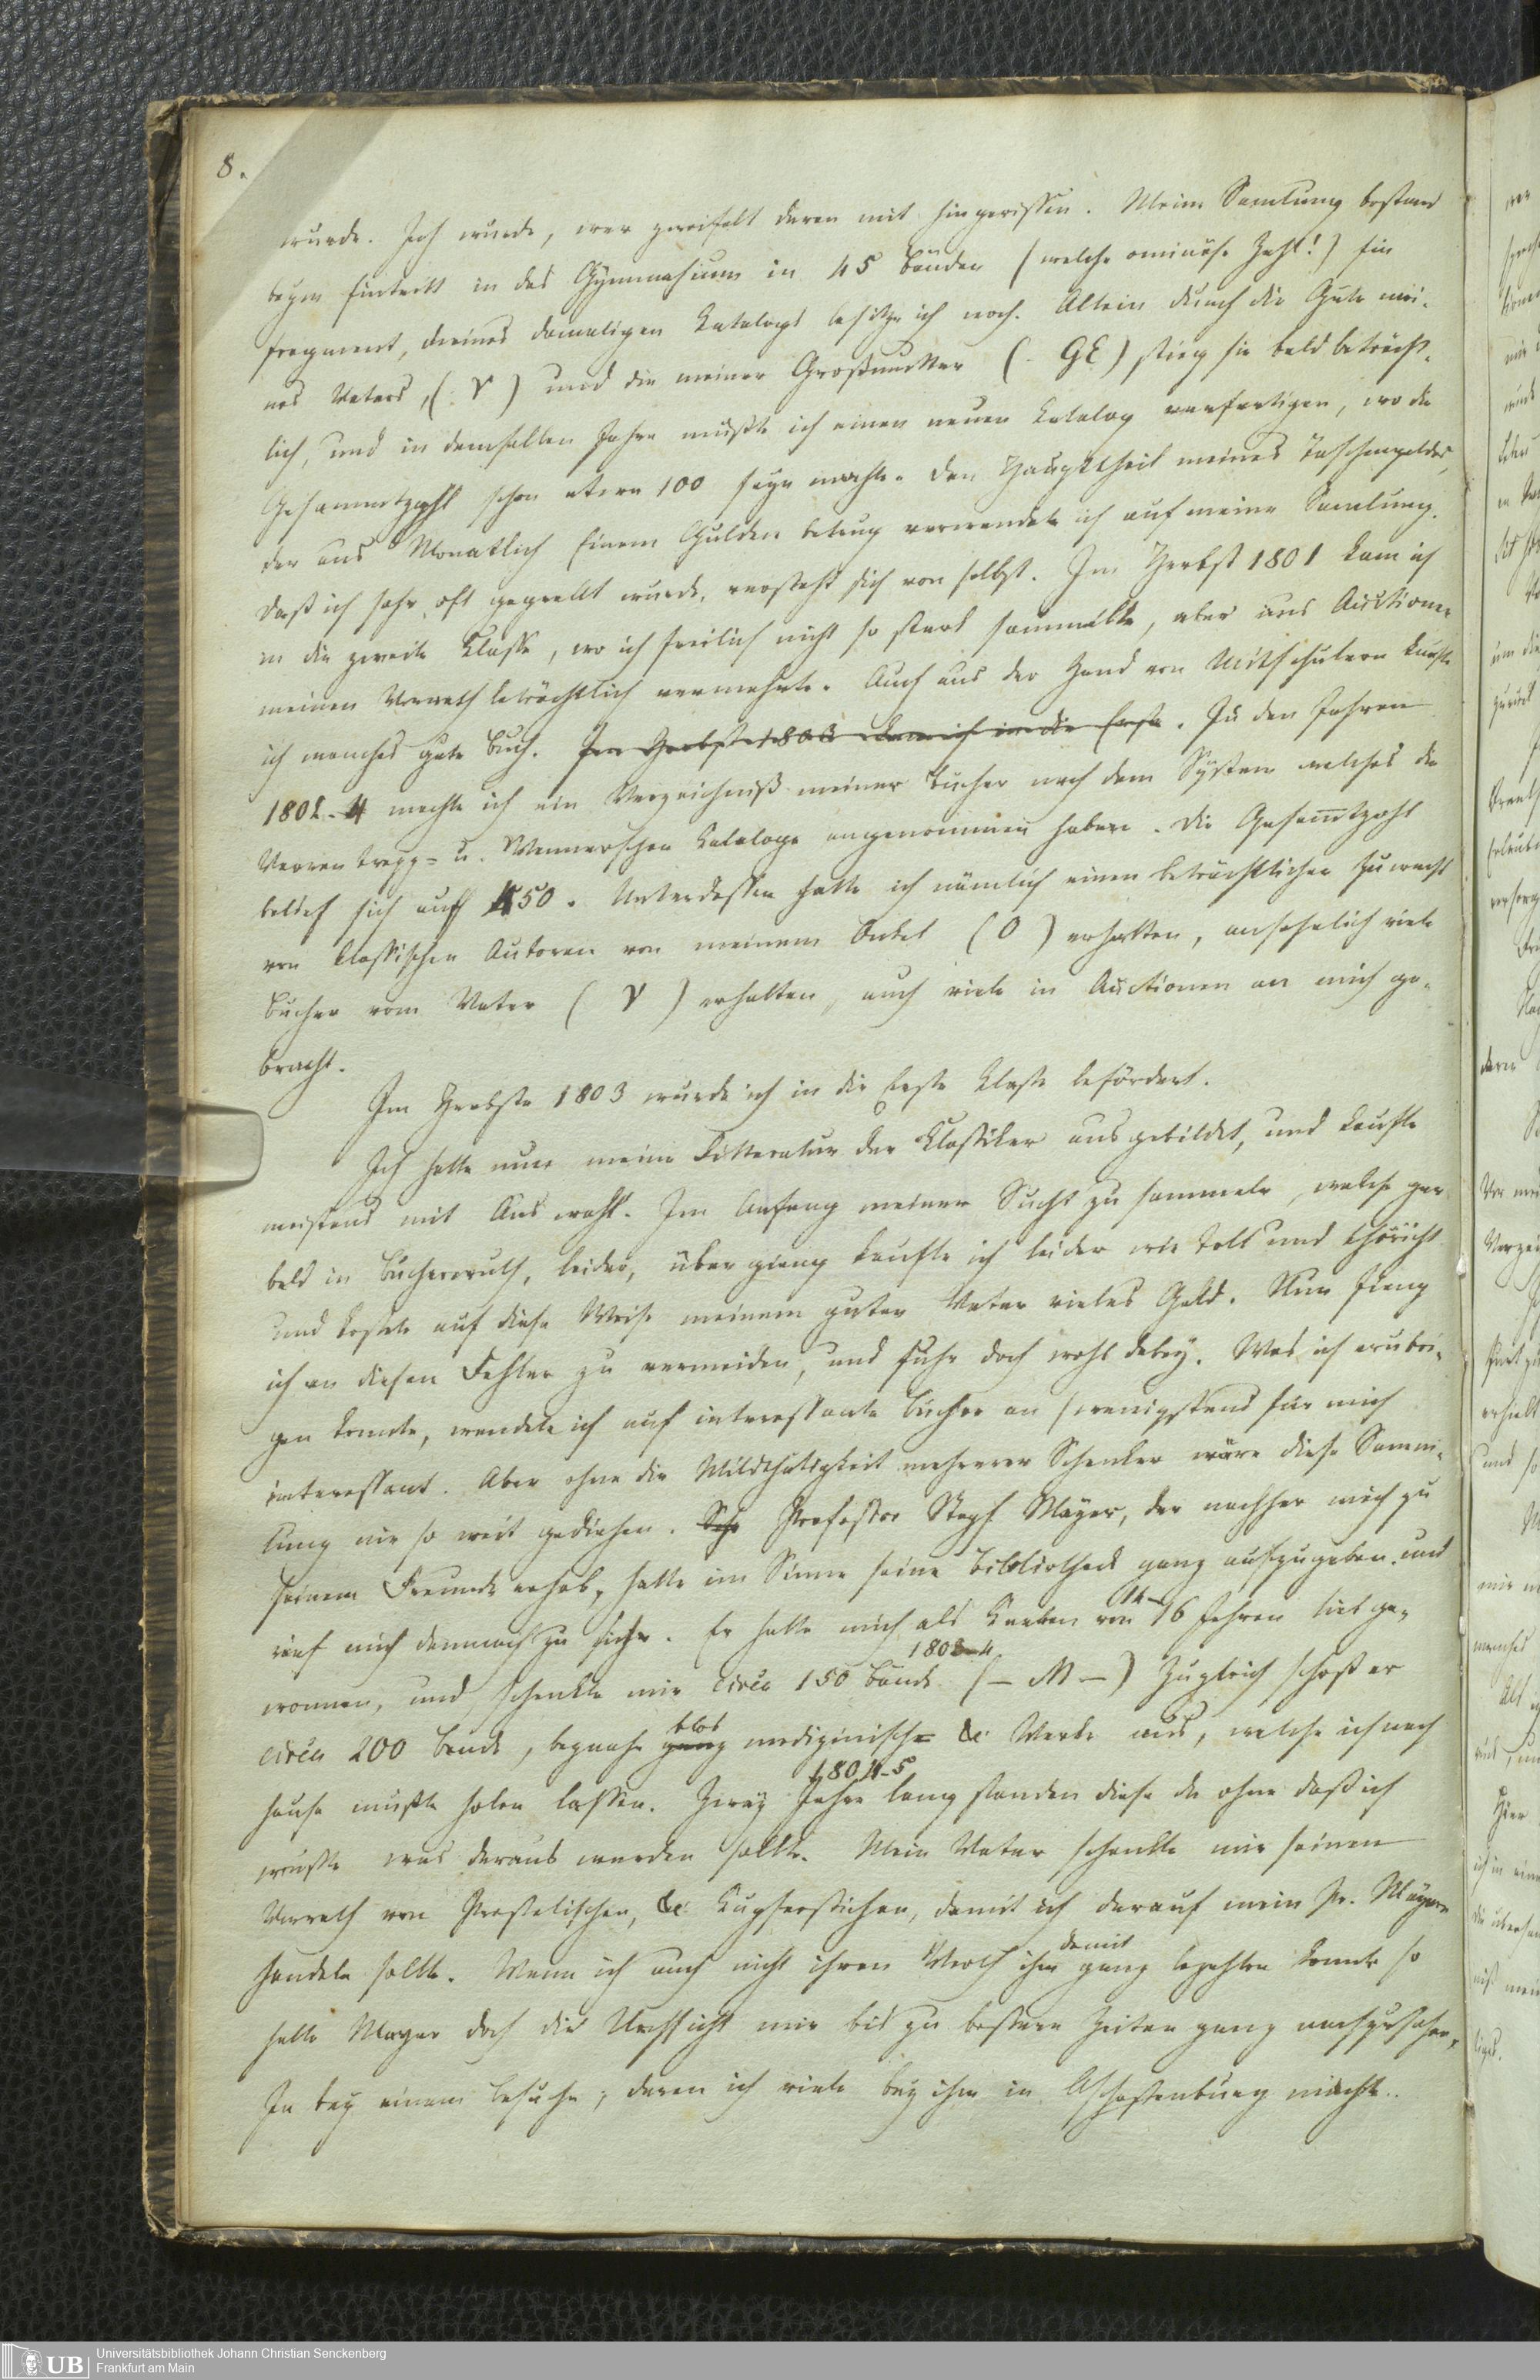 8.
wurde. Ich wurde, wer zweifelt daran mit hingerissen. Meine Samlung bestand
beym Eintritt in das Gymnasium in 45 Bänden (welche ominöse Zahl!) Ein
Fragment, meines damaligen Katalogs besitze ich noch. Allein durch die Güte mei-
nes Vaters, (: V ) und die meiner Großmutter (- GE) stieg sie bald beträcht-
lich, und in demselben Jahre mußte ich einen neuen Katalog verfertigen, wo die
Gesammtzahl schon etwa 100 seyn mochte. Den Haupttheil meines Taschengeldes,
der aus Monatlich Einem Gulden betrug verwendete ich auf meine Samlung.
Daß ich sehr oft geprellt wurde, versteht sich von selbst. Im Herbst 1801 kam ich
in die zweite Klasse, wo ich freilich nicht so stark sammelte, aber aus Auctionen
meinen Vorrath beträchtlich vermehrte. Auch aus der Hand von Mitschülern kaufte
ich manches gute Buch. Im Herbste 1803 kam ich in die Erste. In den Jahren
1802-4 machte ich ein Verzeichniß meiner Bücher nach dem System welches die
Varrentrapp- u. Wennerschen Kataloge angenommen haben. Die Gesamtzahl
belief sich auf 450. Unterdessen hatte ich nämlich einen beträchtlichen Zuwachs
von klassischen Autoren von meinem Onkel (O) erhalten, ansehnlich viele
Bücher vom Vater ( V ) erhalten, auch viele in Auctionen an mich ge-
bracht.
Im Herbste 1803 wurde ich in die Erste Klasse befördert.
Ich hatte nun meine Litteratur der Klassiker ausgebildet, und kaufte
meistens mit Auswahl. Im Anfang meiner Sucht zu sammeln, welche gar
bald in Bücherwuth, leider, übergieng kaufte ich leider wie toll und thöricht
und kostete auf diese Weise meinem guten Vater vieles Geld. Nun fieng
ich an diesen Fehler zu vermeiden, und fuhr doch wohl dabey. Was ich erübri-
gen konnte, wendete ich auf interessante Bücher an (wenigstens für mich
interessant. Aber ohne die Mildthätigkeit mehrerer Schenker wäre diese Samm-
lung nie so weit gediehen. Sehr Professor Steph Mayer, der nachher mich zu
seinem Freunde erhob, hatte im Sinne seine Bibliotheck ganz aufzugeben und
rief mich demnach zu sich. Er hatte mich als Knaben von 14- 16 Jahren lieb ge-
wonnen, und schenkte mir circa 150 Bände 1803-4 (- M -) Zugleich schoß er
circa 200 Bände, beynahe ganz blos medizinische &c Werke aus, welche ich nach
Hause mußte holen lassen. Zwey Jahre 1804-5 lang standen diese da ohne daß ich
wußte was daraus werden sollte. Mein Vater schenkte mir seinen
Vorrath von &c Kupferstichen, damit ich darauf mein Pr. Mayern
handeln sollte. Wenn ich auch nicht ihren Werth ihm damit ganz bezahlen konnte so
hatte Mayer doch die Nachsicht mir bis zu bessern Zeiten ganz nachzusehen.
In bey einem Besuche, deren ich viele bey ihm in Aschaffenburg machte..
UB
Universitätsbibliothek Johann Christian Senckenberg
Frankfurt am Main